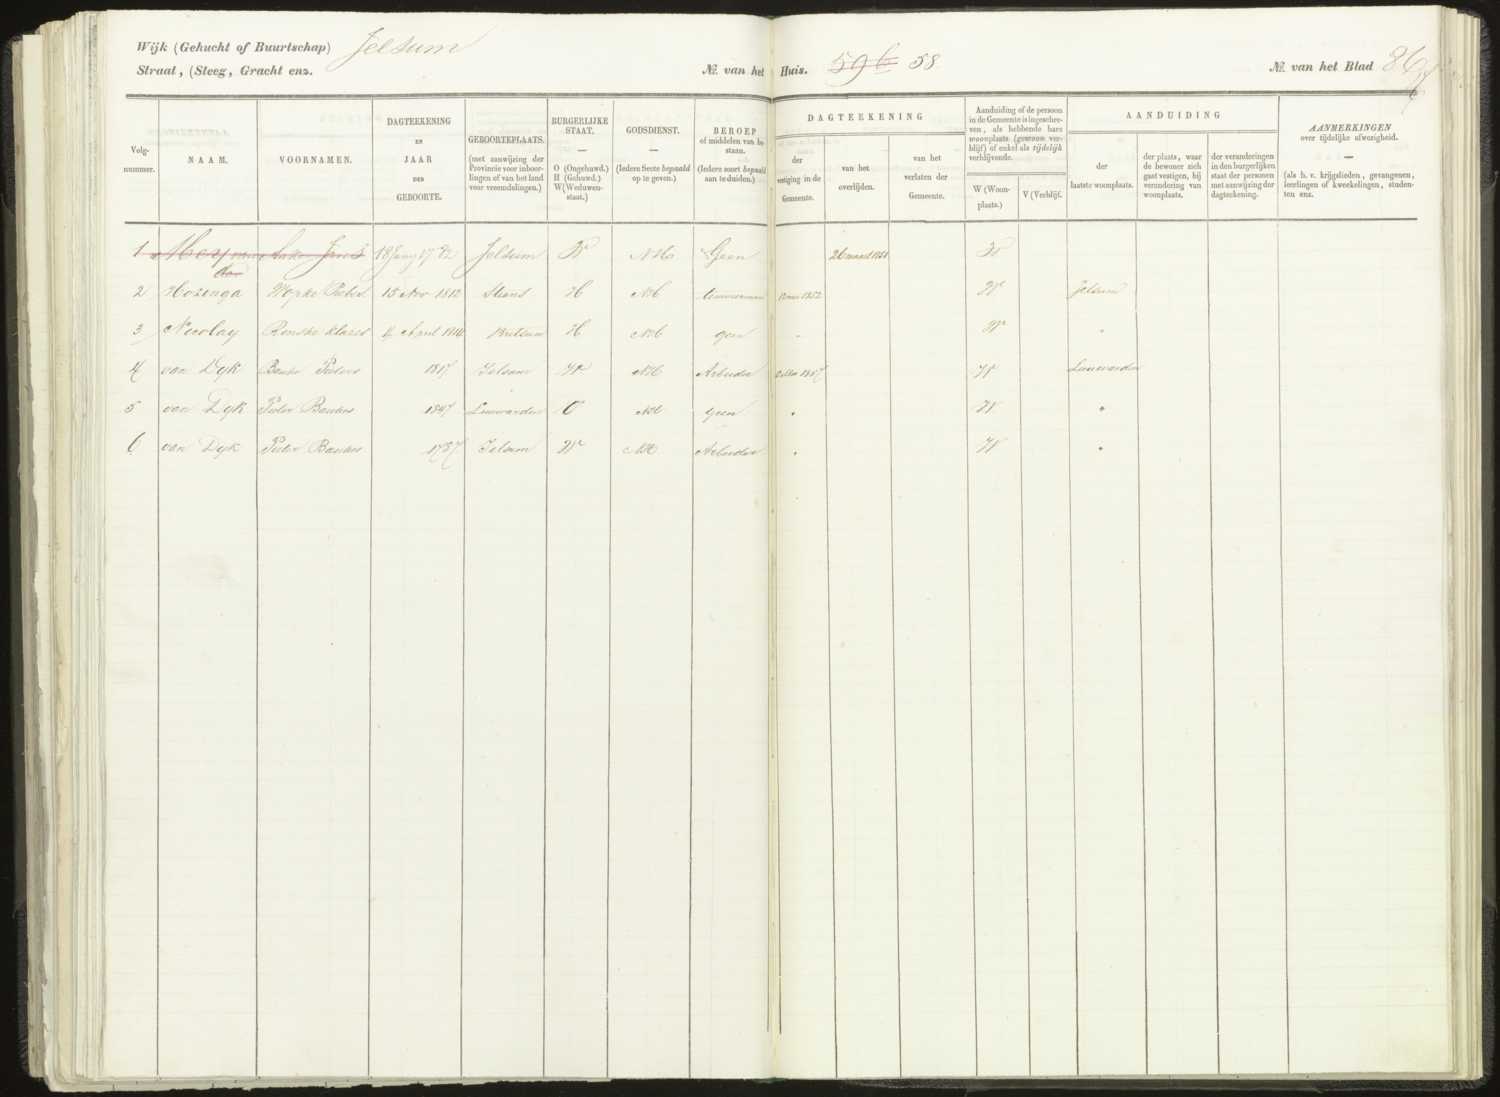 Wijk (Gehucht of Buurtschap) Jelsum
Straat, (Steeg, Gracht enz.
№. van het Huis. 59b 58
№. van het Blad 86
Volg-
nummer.
NAAM.
VOORNAMEN.
DAGTEEKENING
EN
JAAR
DER
GEBOORTE.
GEBOORTEPLAATS.
(met aanwijzing der
Provincie voor inboor-
lingen of van het land
voor vreemdelingen.)
BURGERLIJKE
STAAT.
—
O (Ongehuwd.)
H (Gehuwd.)
W (Weduwen-
staat.)
GODSDIENST.
—
(Iedere Secte bepaald
op te geven.)
BEROEP
of middelen van be-
staan.
(Iedere soort bepaald
aan te duiden.)
DAGTEEKENING
der
vestiging in de
Gemeente.
van het
overlijden.
van het
verlaten der
Gemeente.
Aanduiding of de persoon
in de Gemeente is ingeschre-
ven, als hebbende hare
woonplaats (gewoon ver-
blijf) of enkel als tijdelijk
verblijvende.
W (Woon-
plaats.)
V (Verblijf.
AANDUIDING
der
laatste woonplaats.
der plaats, waar
de bewoner zich
gaat vestigen, bij
verandering van
woonplaats.
der veranderingen
in den burgerlijken
staat der personen
met aanwijzing der
dagteekening.
AANMERKINGEN
over tijdelijke afwezigheid.
—
(als b. v. krijgslieden, gevangenen,
leerlingen of kweekelingen, studen-
ten enz.
1 Jelsum W NH Geen 26 maart 1851 W
2 Hozenga Wopke 15 Nov 1812 Stiens H NH timmerman 12 mei 1852 W Jelsum
3 Nicolay Renske Klazes 4 April 1816 Britsum H NH geen " W "
4 van Dyk Bauke Pieters 1817 Jelsum W NH Arbeider W Leeuwarden
5 van Dyk Pieter Baukes 1847 Leeuwarden O NH Geen " W "
6 van Dyk Pieter Baukes 1787 Jelsum W NH Arbeider " W "